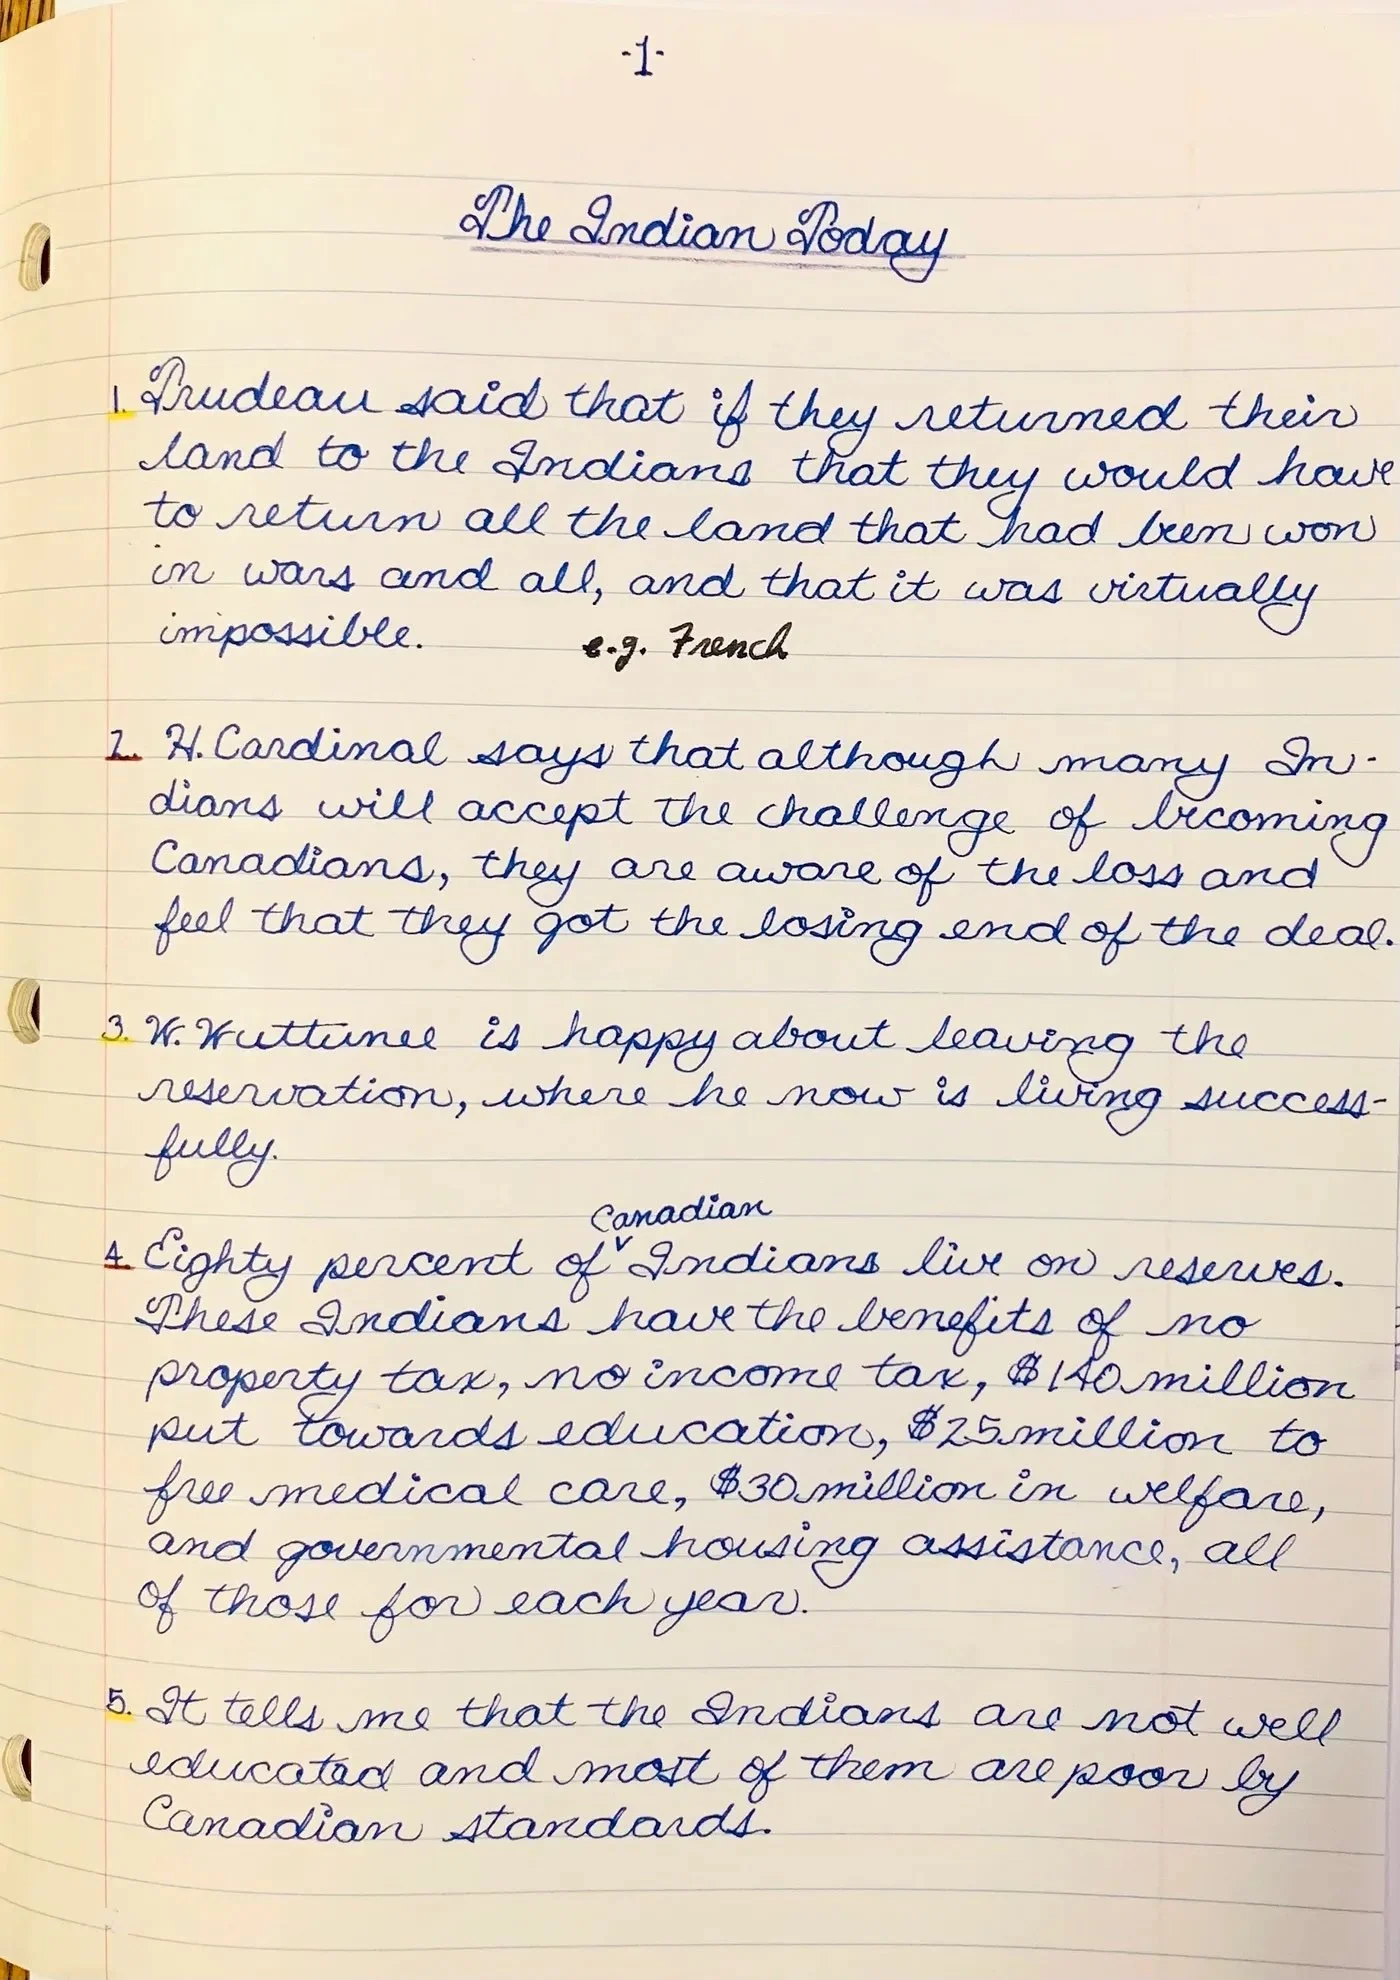 -1-
The Indian Today
1. Trudeau said that if they returned their
land to the Indians that they would have
to return all the land that had been won
in wars and all, and that it was virtually
impossible. e.g. French
2. H. Cardinal says that although many In-
dians will accept the challenge of becoming
Canadians, they are aware of the loss and
feel that they got the losing end of the deal.
3. W. Wuttunee is happy about leaving the
reservation, where he now is living success-
fully.
Canadian
4. Eighty percent of ˅ Indians live on reserves.
These Indians have the benefits of no
property tax, no income tax, $140 million
put towards education, $25 million to
free medical care, $30 million in welfare,
and governmental housing assistance, all
of those for each year.
5. It tells me that the Indians are not well
educated and most of them are poor by
Canadian standards.